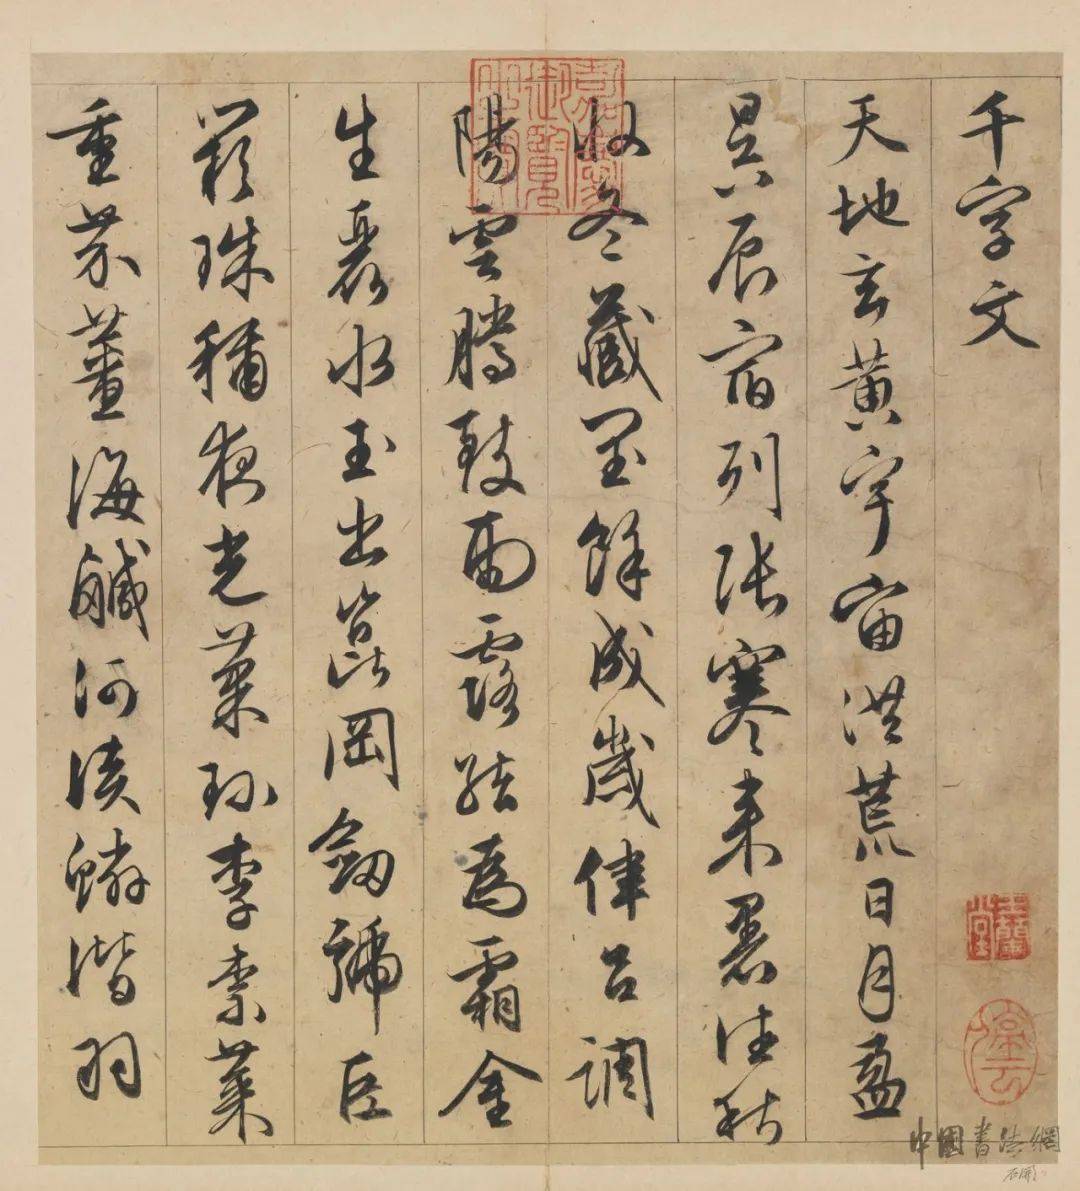 千字文
天地玄黃宇宙洪荒日月盈
昃辰宿列張寒來暑往秋
收冬藏閏餘成歲律呂調
陽雲騰致雨露結為霜金
生麗水玉出崑岡劍號巨
闕珠稱夜光菓珍李柰菜
重芥薑海鹹河淡鱗潛羽
嘉慶御覽之寶
中國書法網